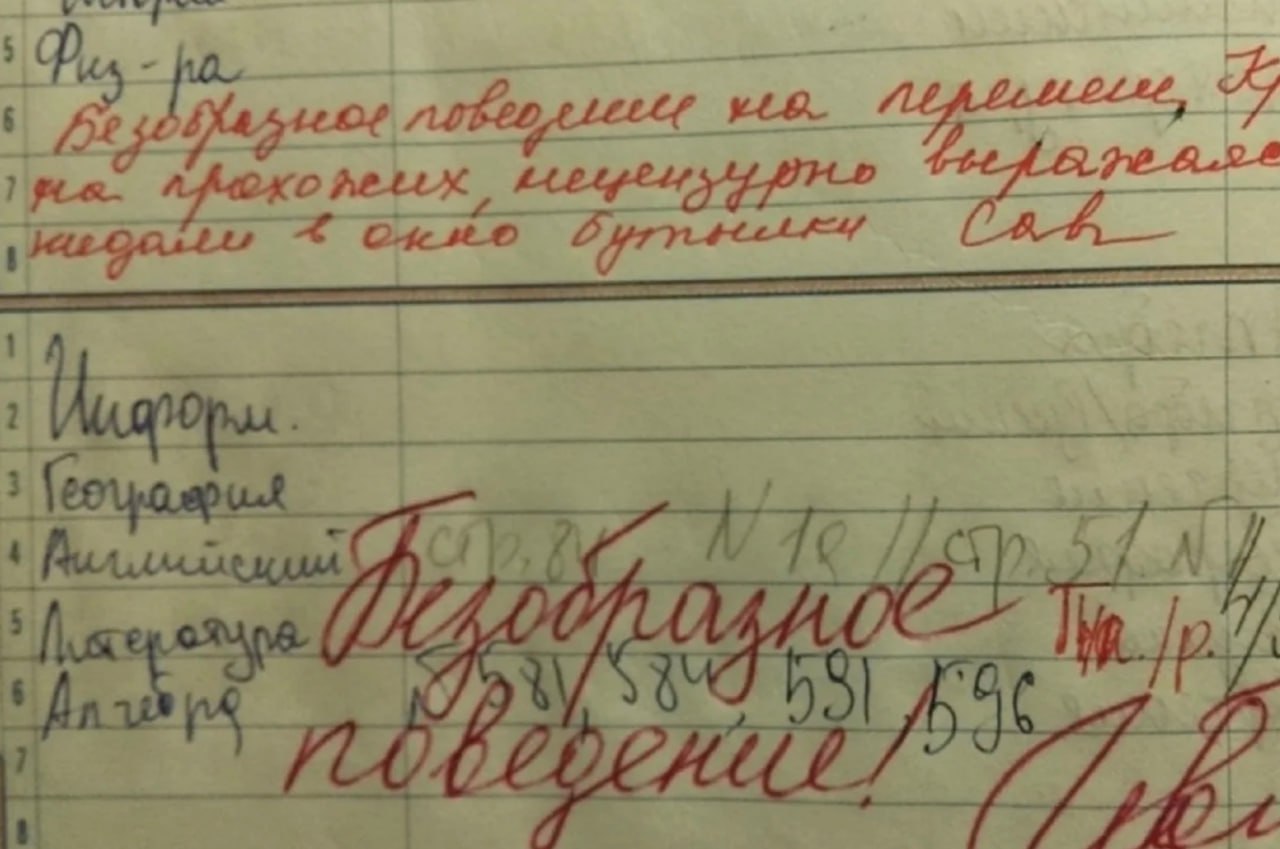 5 Физ-ра
6 Безобразное поведение на перемен, Кр
7 на прохожих, нецензурно выражалс
8 кидали в окно бутылки Сав
1
2 Информ.
3 География
4 Английский стр. 8 N 19 // стр. 51. N
Безобразное
5 Литература /р.
6 Алгебра № 581, 584, 591, 596
7 поведение!
8